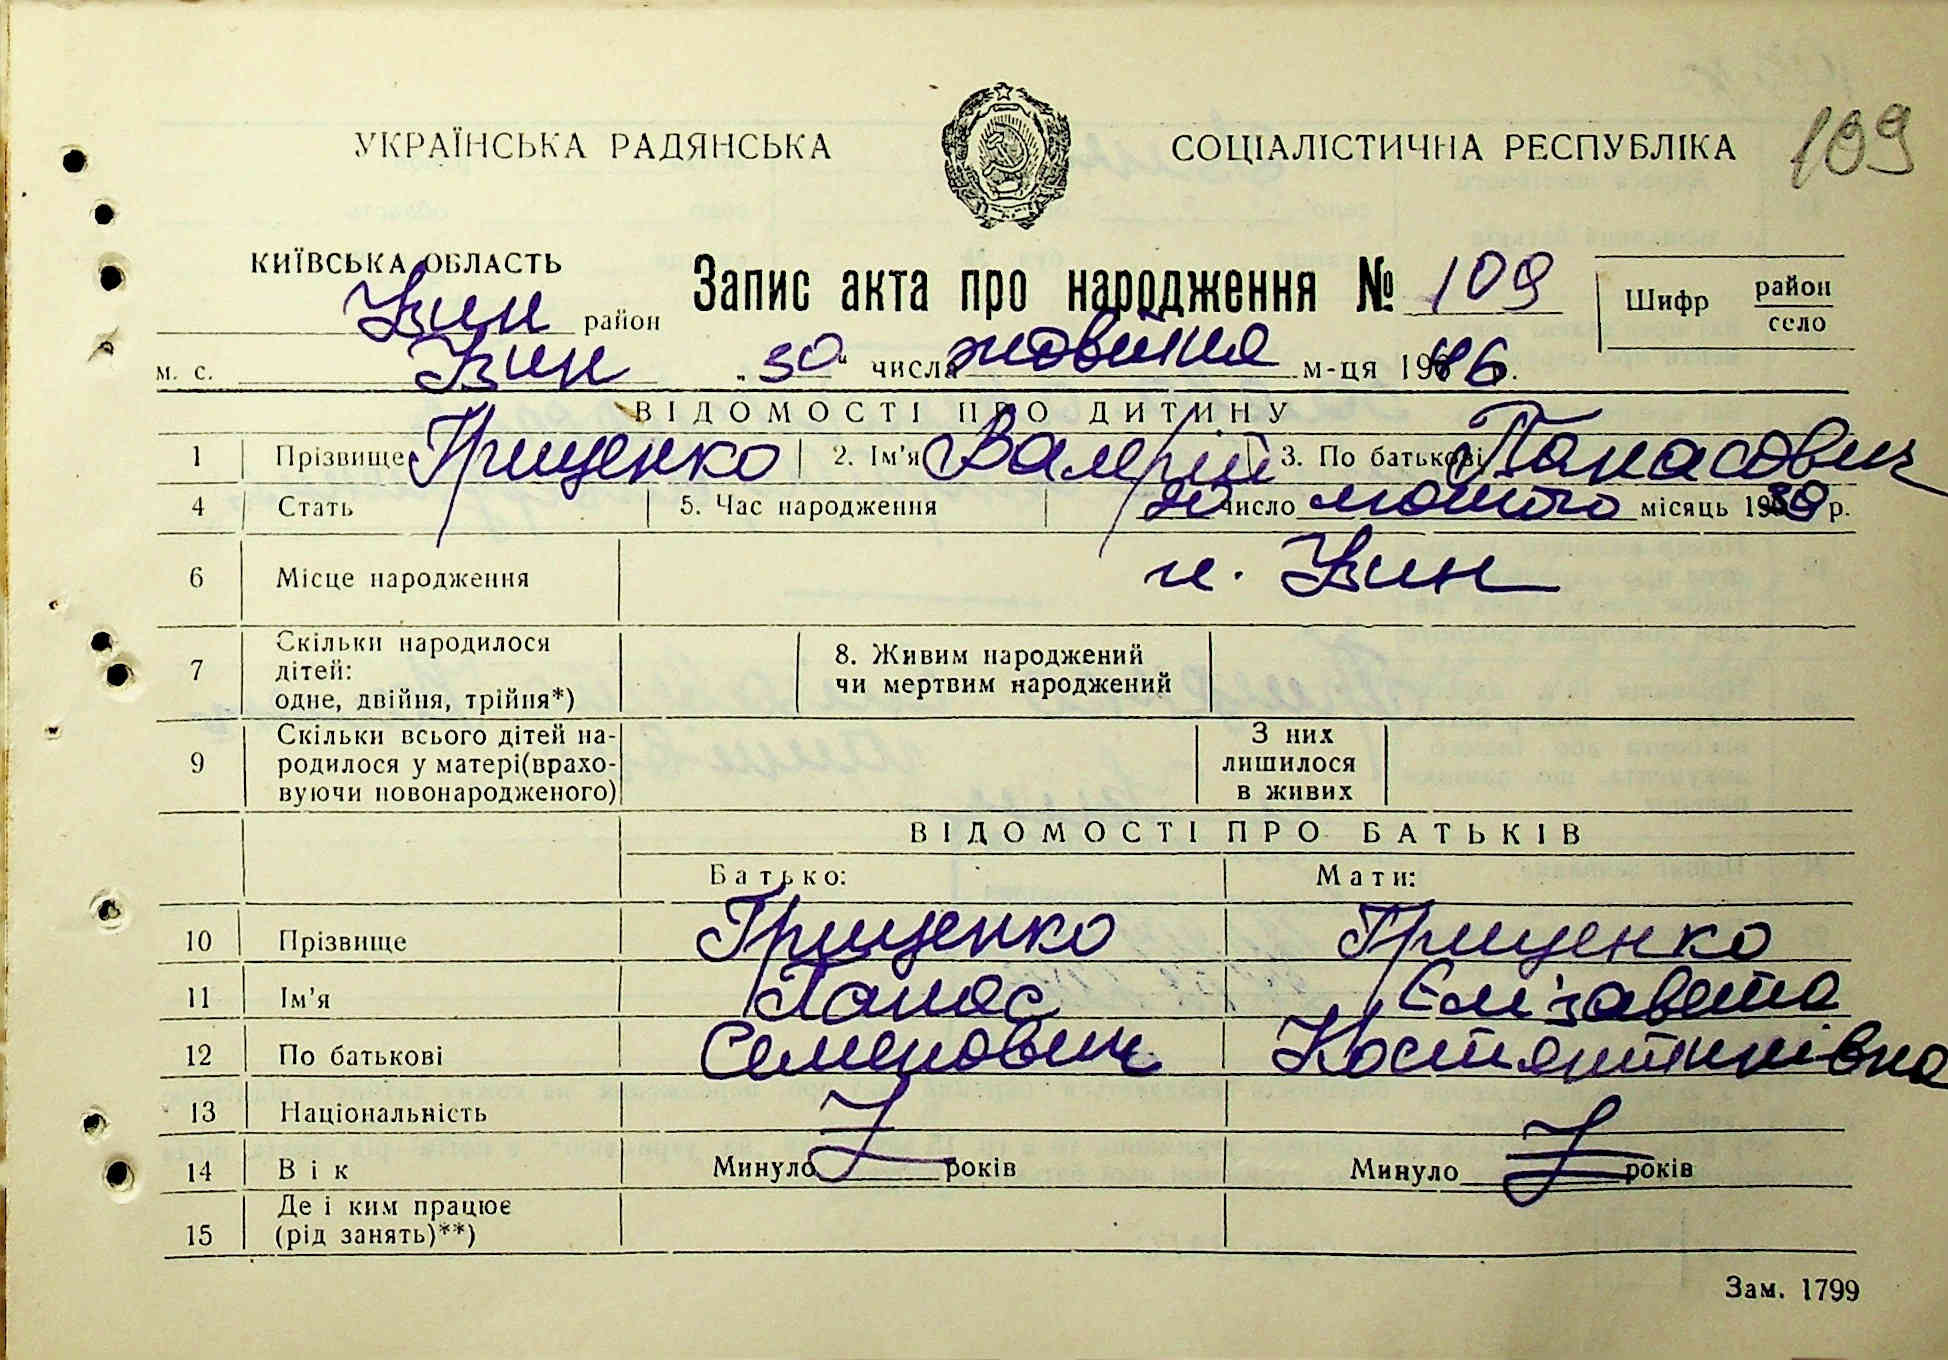 УКРАЇНСЬКА РАДЯНСЬКА СОЦІАЛІСТИЧНА РЕСПУБЛІКА 109
КИЇВСЬКА ОБЛАСТЬ
Запис акта про народження № 109
Шифр район село
Узин район
м. с. Узин „30" числа жовтня м-ця 1946.
ВІДОМОСТІ ПРО ДИТИНУ
1 Прізвище Грищенко 2. Ім'я Валерій 3. По батькові Панасович
4 Стать 5. Час народження число лютого місяць 19 р.
6 Місце народження м. Узин
7 Скільки народилося дітей: одне, двійня, трійня*) 8. Живим народжений чи мертвим народжений
9 Скільки всього дітей народилося у матері(враховуючи новонародженого) З них лишилося в живих
ВІДОМОСТІ ПРО БАТЬКІВ
Батько: Мати:
10 Прізвище Грищенко Грищенко
11 Ім'я Панас Єлізавета
12 По батькові Семенович Костянтинівна
13 Національність
14 Вік Минуло років Минуло років
15 Де і ким працює (рід занять)**)
Зам. 1799